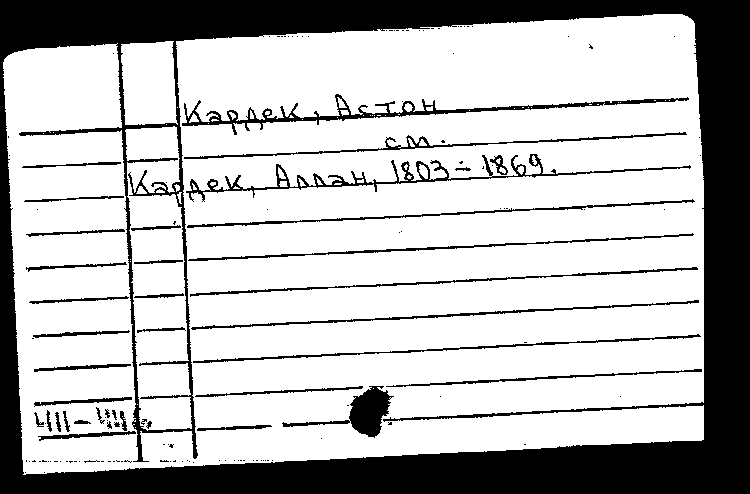 Кардек, Астон
см.
Кардек, Аллан, 1803÷1869.